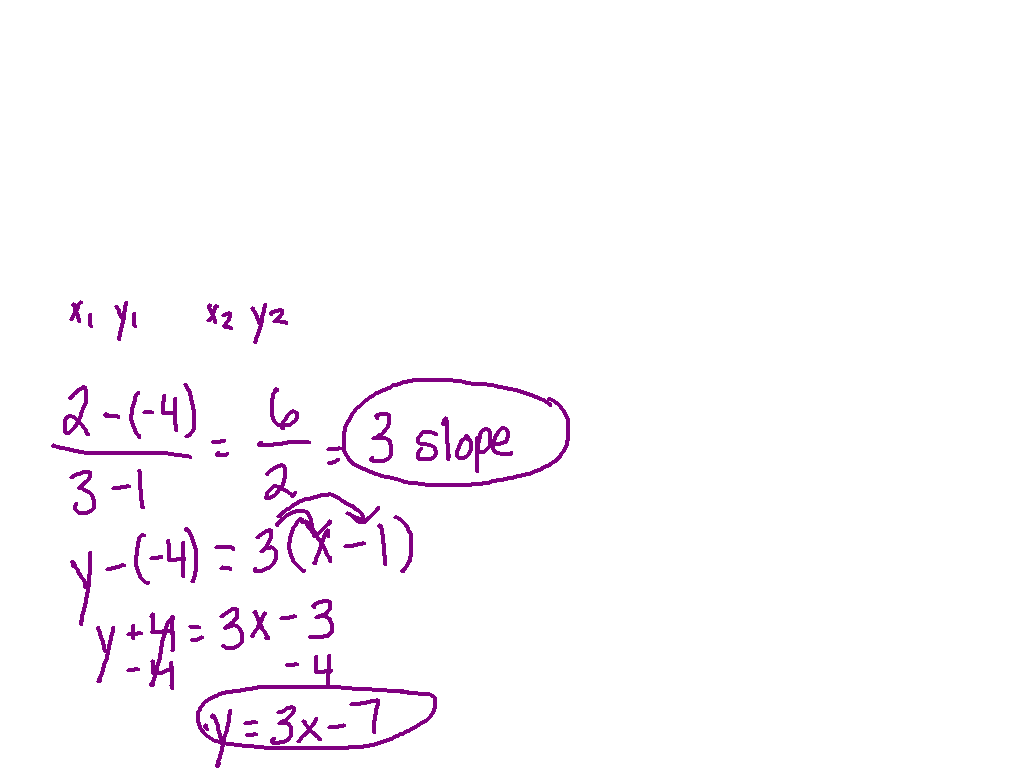 x₁ y₁ x₂ y₂
2-(-4)/3-1 = 6/2 = 3 slope
y-(-4) = 3(x-1)
y+4 = 3x-3
-4 -4
y = 3x-7